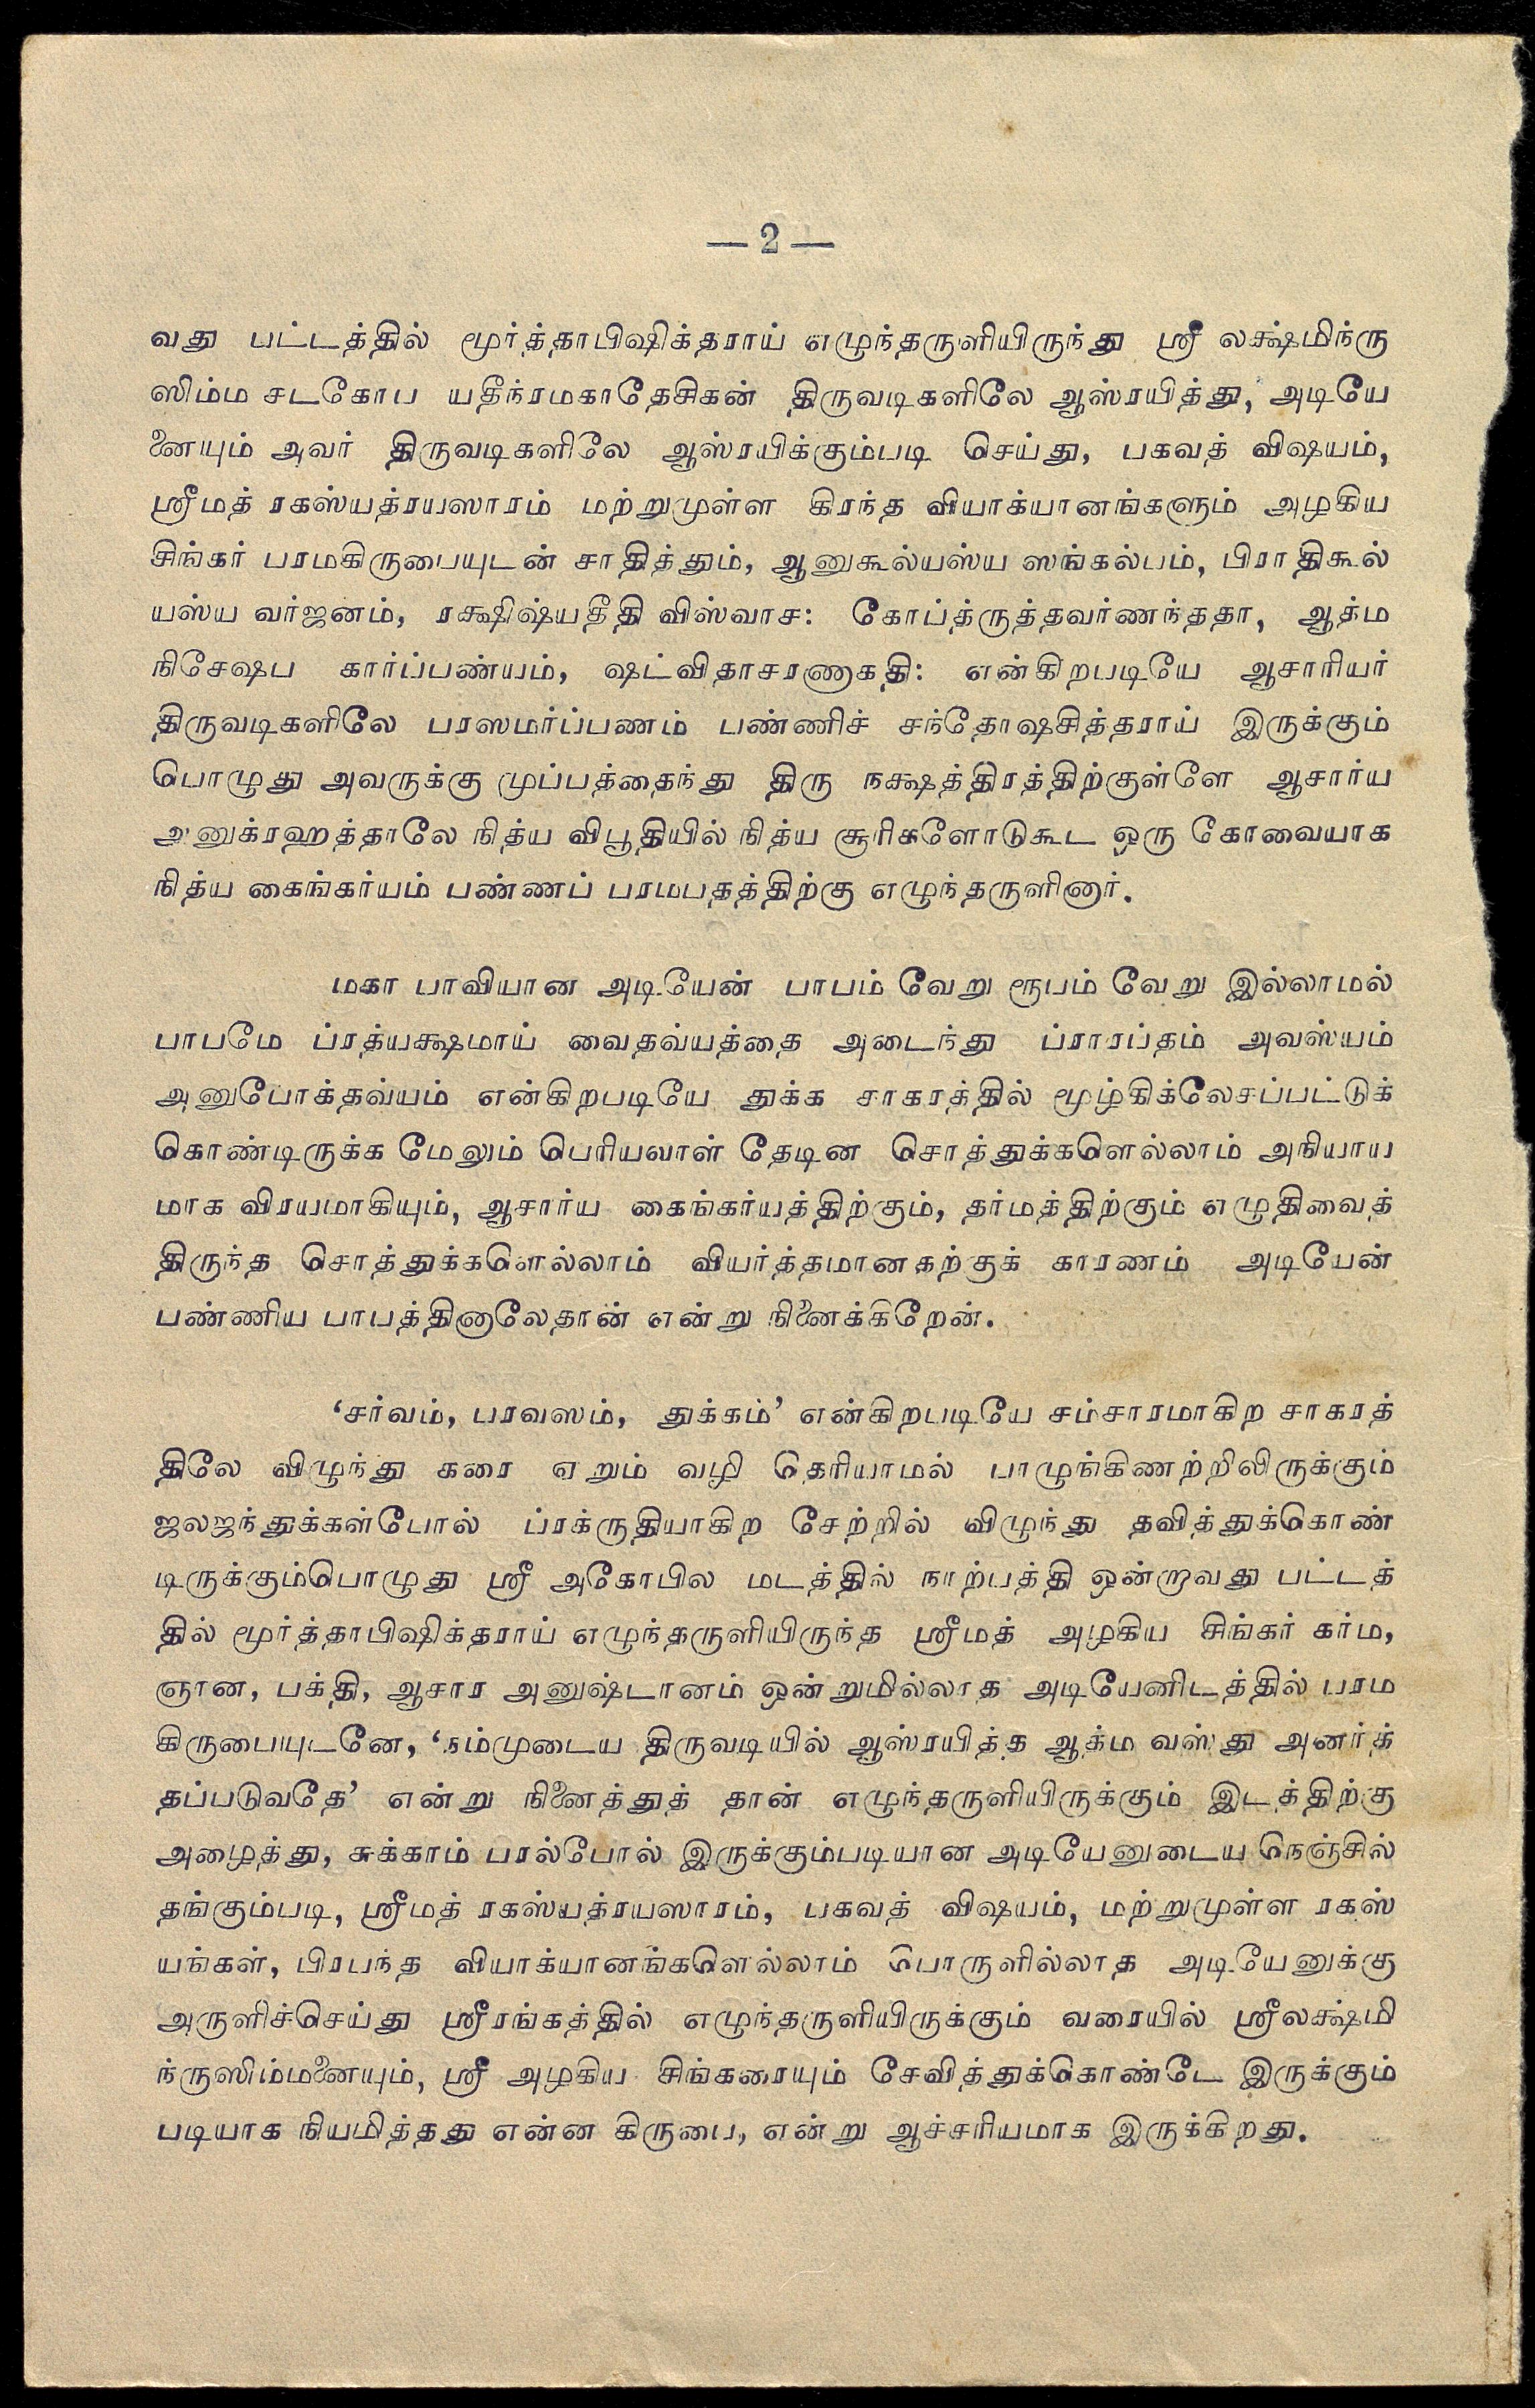 — 2 —
வது பட்டத்தில் மூர்த்தாபிஷிக்தராய் எழுந்தருளியிருந்து ஸ்ரீ லக்ஷ்மிந்ரு
ஸிம்ம சடகோப யதீந்ரமகாதேசிகன் திருவடிகளிலே ஆஸ்ரயித்து, அடியே
னையும் அவர் திருவடிகளிலே ஆஸ்ரயிக்கும்படி செய்து, பகவத் விஷயம்,
ஸ்ரீமத் ரகஸ்யத்ரயஸாரம் மற்றுமுள்ள கிரந்த வியாக்யானங்களும் அழகிய
சிங்கர் பரமகிருபையுடன் சாதித்தும், ஆனுகூல்யஸ்ய ஸங்கல்பம், பிராதிகூல்
யஸ்ய வர்ஜனம், ரக்ஷிஷ்யதீதி விஸ்வாச: கோப்த்ருத்தவர்ணந்ததா, ஆத்ம
நிசேஷப கார்ப்பண்யம், ஷட்விதாசரணாகதி: என்கிறபடியே ஆசாரியர்
திருவடிகளிலே பரஸமர்ப்பணம் பண்ணிச் சந்தோஷசித்தராய் இருக்கும்
பொழுது அவருக்கு முப்பத்தைந்து திரு நக்ஷத்திரத்திற்குள்ளே ஆசார்ய
அனுக்ரஹத்தாலே நித்ய விபூதியில் நித்ய சூரிகளோடுகூட ஒரு கோவையாக
நித்ய கைங்கர்யம் பண்ணப் பரமபதத்திற்கு எழுந்தருளினார்.
மகா பாவியான அடியேன் பாபம் வேறு ரூபம் வேறு இல்லாமல்
பாபமே ப்ரத்யக்ஷமாய் வைதவ்யத்தை அடைந்து ப்ராரப்தம் அவஸ்யம்
அனுபோக்தவ்யம் என்கிறபடியே துக்க சாகரத்தில் மூழ்கிக்லேசப்பட்டுக்
கொண்டிருக்க மேலும் பெரியவாள் தேடின சொத்துக்களெல்லாம் அநியாய
மாக விரயமாகியும், ஆசார்ய கைங்கர்யத்திற்கும், தர்மத்திற்கும் எழுதிவைத்
திருந்த சொத்துக்களெல்லாம் வியர்த்தமானகற்குக் காரணம் அடியேன்
பண்ணிய பாபத்தினாலேதான் என்று நினைக்கிறேன்.
‘சர்வம், பரவஸம், துக்கம்’ என்கிறபடியே சம்சாரமாகிற சாகரத்
திலே விழுந்து கரை ஏறும் வழி தெரியாமல் பாழுங்கிணற்றிலிருக்கும்
ஜலஜந்துக்கள்போல் ப்ரக்ருதியாகிற சேற்றில் விழுந்து தவித்துக்கொண்
டிருக்கும்பொழுது ஸ்ரீ அகோபில மடத்தில் நாற்பத்தி ஒன்றாவது பட்டத்
தில் மூர்த்தாபிஷிக்தராய் எழுந்தருளியிருந்த ஸ்ரீமத் அழகிய சிங்கர் கர்ம,
ஞான, பக்தி, ஆசார அனுஷ்டானம் ஒன்றுமில்லாத அடியேனிடத்தில் பரம
கிருபையுடனே, ‘நம்முடைய திருவடியில் ஆஸ்ரயித்த ஆக்ம வஸ்து அனர்க்
தப்படுவதே’ என்று நினைத்துத் தான் எழுந்தருளியிருக்கும் இடத்திற்கு
அழைத்து, சுக்காம் பரல்போல் இருக்கும்படியான அடியேனுடைய நெஞ்சில்
தங்கும்படி, ஸ்ரீமத் ரகஸ்யத்ரயஸாரம், பகவத் விஷயம், மற்றுமுள்ள ரகஸ்
யங்கள், பிரபந்த வியாக்யானங்களெல்லாம் பொருளில்லாத அடியேனுக்கு
அருளிச்செய்து ஸ்ரீரங்கத்தில் எழுந்தருளியிருக்கும் வரையில் ஸ்ரீலக்ஷ்மி
ந்ருஸிம்மனையும், ஸ்ரீ அழகிய சிங்கரையும் சேவித்துக்கொண்டே இருக்கும்
படியாக நியமித்தது என்ன கிருபை, என்று ஆச்சரியமாக இருக்கிறது.